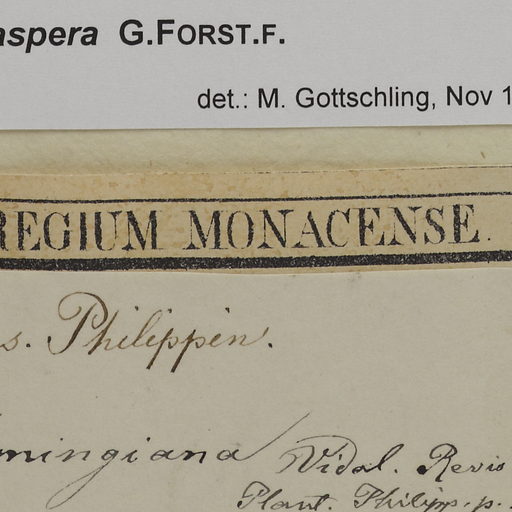 aspera G.FORST.F.
det.: M. Gottschling, Nov 1
REGIUM MONACENSE.
s. Philippin.
mingiana Vidal. Revis
Plant. Philipp. p.